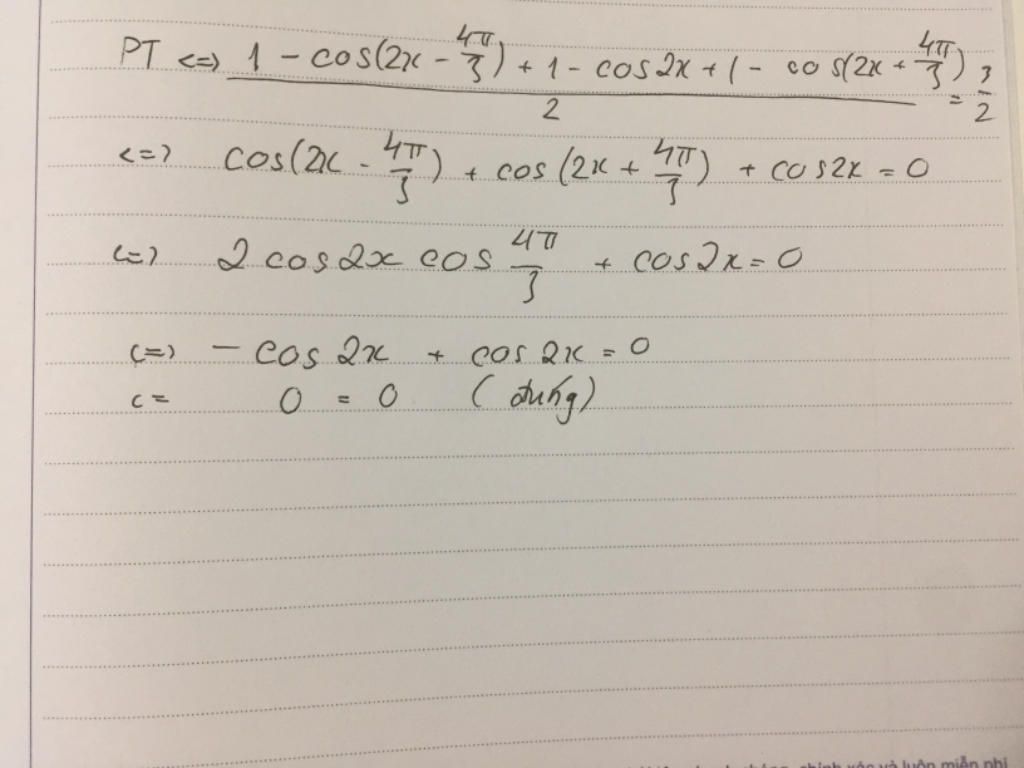 PT <=> (1 - cos(2x - 4π/3) + 1 - cos2x + 1 - cos(2x + 4π/3))/2 = 3/2
<=> cos(2x - 4π/3) + cos(2x + 4π/3) + cos2x = 0
<=> 2 cos2x cos 4π/3 + cos2x = 0
<=> - cos 2x + cos 2x = 0
<= 0 = 0 (đúng)
chính xác và luôn miễn phí